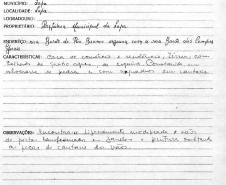 MUNICÍPIO: Lapa
LOCALIDADE: Lapa
LOGRADOURO:
PROPRIETÁRIO: Prefeitura Municipal da Lapa
ENDEREÇO: rua Barão do Rio Branco esquina com a rua Barão dos Campos
Gerais
CARACTERÍSTICAS: Casa de comércio e residência, térrea, com
telhado de quatro águas, de esquina. Construída em
alvenaria de pedra e com enquadros em cantaria
OBSERVAÇÕES: Encontra-se ligeiramente modificada c/ vão
de porta transformado em janela e pintura
a de cantaria do vãos.